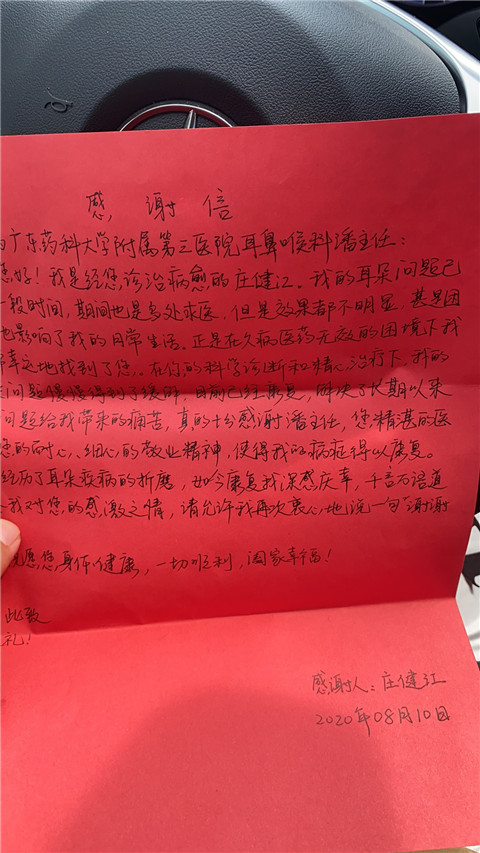 感谢信
广东药科大学附属第三医院耳鼻喉科潘主任：
您好！我是经您诊治病愈的庄健江。我的耳朵问题已
一段时间，期间也是多处求医，但是效果都不明显，甚是困
也影响了我的日常生活。正是在久病医药无效的困境下我
幸运地找到了您，在你的科学诊断和精心治疗下，我的
问题慢慢得到了缓解，目前已经康复，解决了长期以来
问题给我带来的痛苦，真的十分感谢潘主任，您精湛的医
您的耐心、细心的敬业精神，使得我的病症得以康复。
经历了耳朵疾病的折磨，如今康复我深感庆幸，千言万语道
我对您的感激之情，请允许我再次衷心地说一句"谢谢
祝愿您身体健康，一切顺利，阖家幸福！
此致
礼！
感谢人：庄健江
2020年08月10日